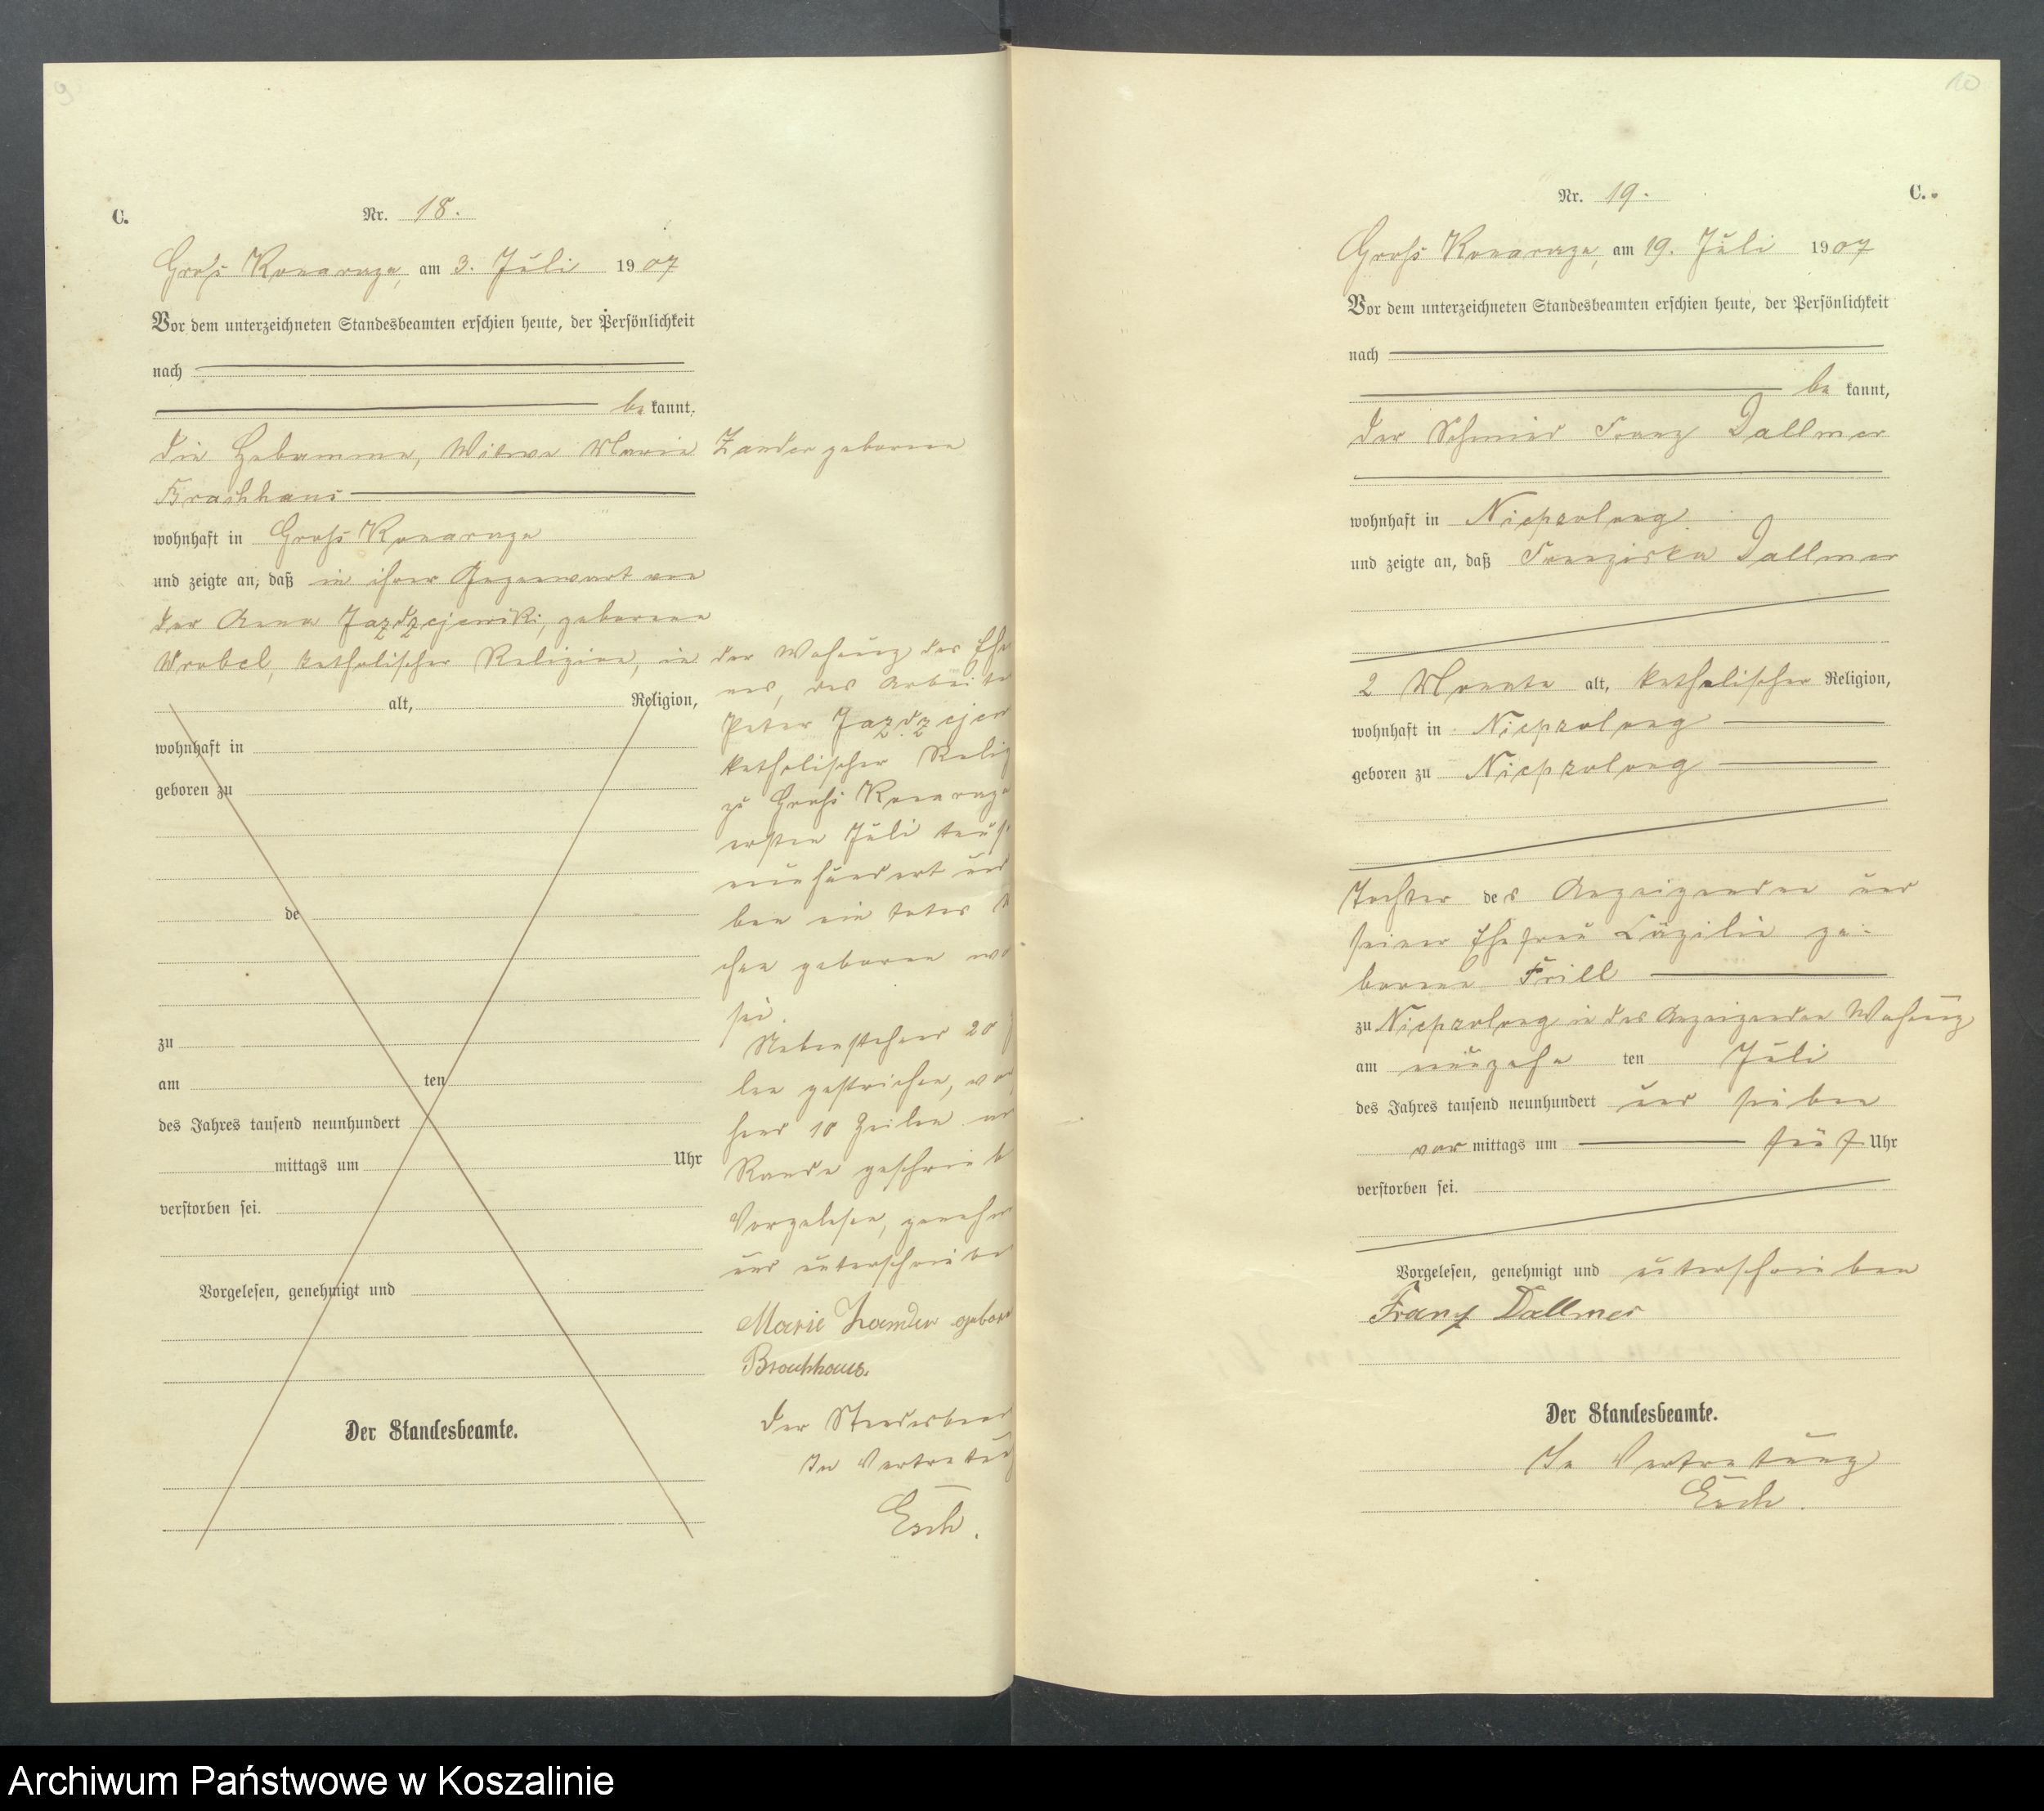 9
C.
Nr. 18.
Groß Konarzyn, am 3. Juli 1907
Vor dem unterzeichneten Standesbeamten erschien heute, der Persönlichkeit
nach
be kannt,
die Hebamme, Witwe Marie Zander geborene
wohnhaft in Groß Konarzyn
und zeigte an, daß in ihrer Gegenwart von
der Anna Jazdzejewski, geborene
Wrobel, katholischer Religion, in der Wohnung des Ehe
alt, Religion,
nes, des Arbeite
wohnhaft in
Peter Jazdzejew
geboren zu
katholischer Relig
zu Groß Konarzyn
ersten Juli taus
neunhundert und
de
ben ein totes
chen geboren wo
sei.
zu
Nebenstehend 20
am ten
len gestrichen, vor
des Jahres tausend neunhundert
hend 10 Zeilen am
mittags um Uhr
Rande geschrieb
verstorben sei.
Vorgelesen, genehm
und unterschriebe
Vorgelesen, genehmigt und
Marie Zander gebor
Der Standesbeam
Der Standesbeamte.
In Vertretung
Esch.
10
Nr. 19.
C.
Groß Konarzyn, am 19. Juli 1907
Vor dem unterzeichneten Standesbeamten erschien heute, der Persönlichkeit
nach
be kannt,
der Schmied Franz Dallmer
wohnhaft in Niepszolong
und zeigte an, daß Franziska Dallmer
2 Monate alt, katholischer Religion,
wohnhaft in Niepszolong
geboren zu Niepszolong
Tochter des Anzeigenden und
seiner Ehefrau Cäzilie ge-
borene Frill
zu Niepszolong in des Anzeigenden Wohnung
am neunzehn ten Juli
des Jahres tausend neunhundert und sieben
vor mittags um fünf Uhr
verstorben sei.
Vorgelesen, genehmigt und unterschrieben
Franz Dallmer
Der Standesbeamte.
In Vertretung
Esch.
Archiwum Państwowe w Koszalinie